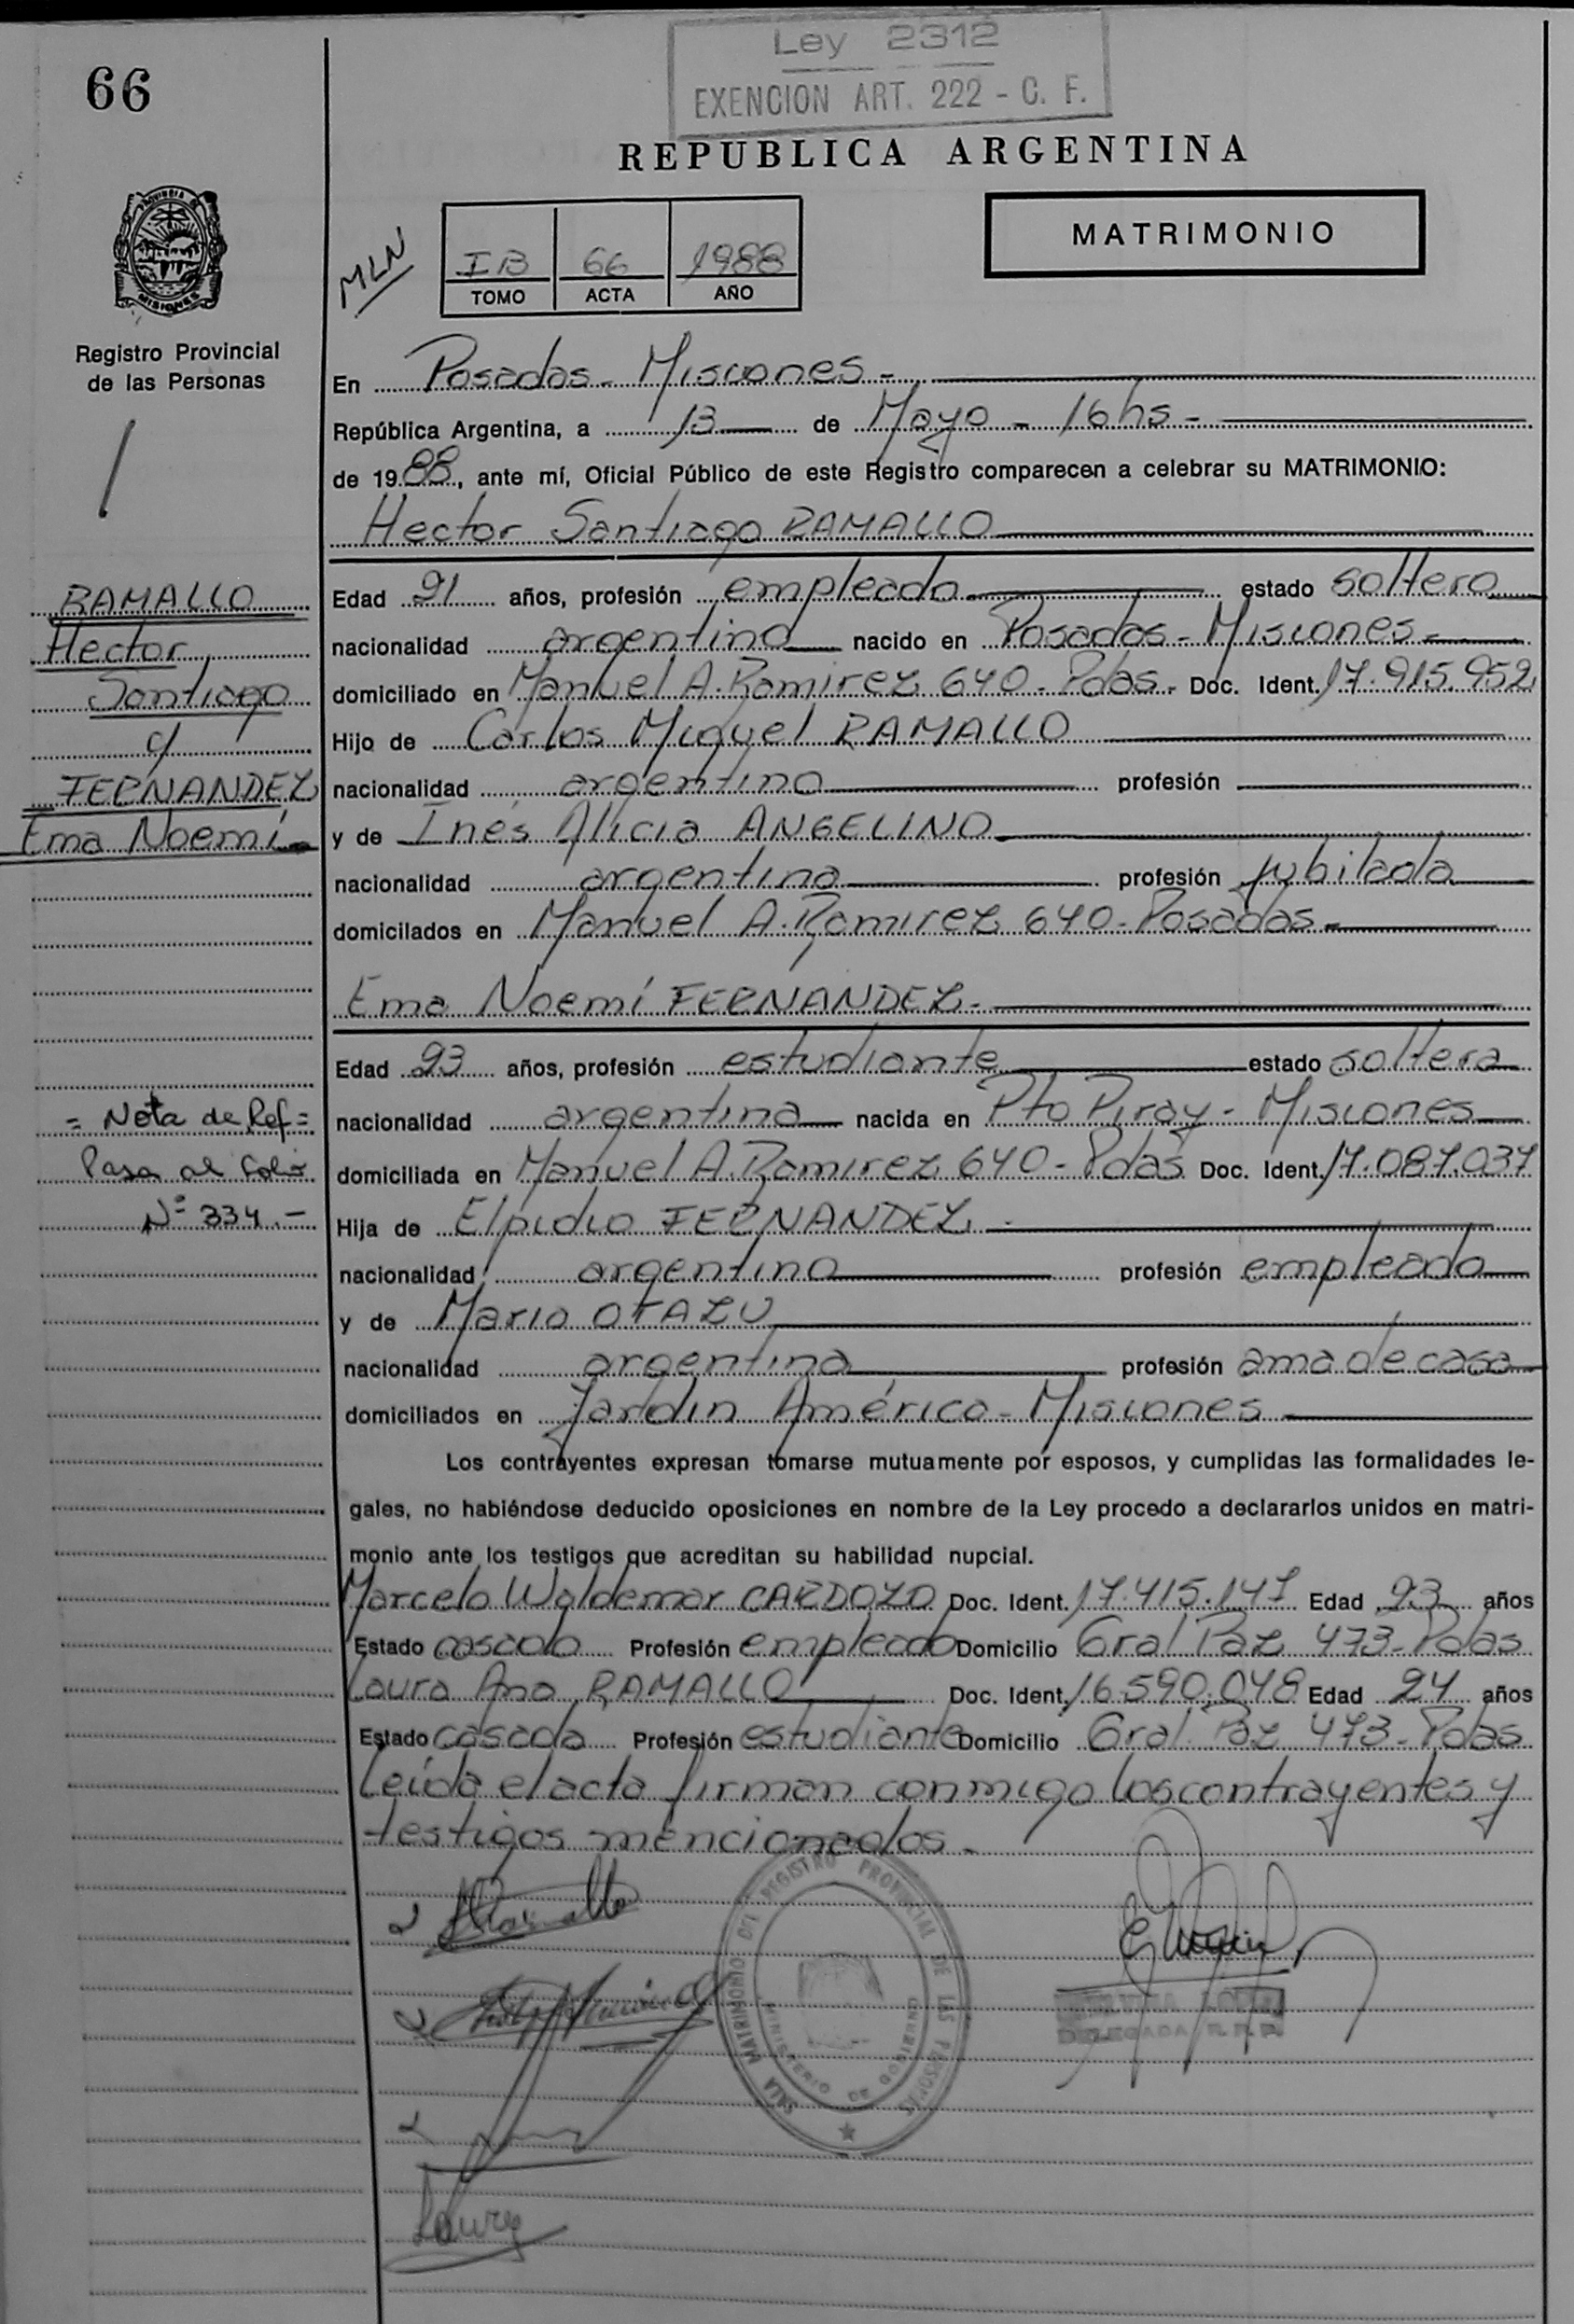 66
Ley 2312
EXENCION ART. 222 - C. F.
REPUBLICA ARGENTINA
PROVINCIA DE
MISIONES
Registro Provincial
de las Personas
MLN
IB 66 1988
TOMO ACTA AÑO
MATRIMONIO
En Posadas - Misiones -
República Argentina, a 13 de Mayo - 16 hs -
de 1988, ante mí, Oficial Público de este Registro comparecen a celebrar su MATRIMONIO:
Hector Santiago RAMALLO
RAMALLO
Hector
Santiago
c/
FERNANDEZ
Ema Noemí
Edad 21 años, profesión empleado estado soltero
nacionalidad argentina nacido en Posadas - Misiones -
domiciliado en Manuel A. Ramirez 640 - Pdas - Doc. Ident. 17.915.952
Hijo de Carlos Miguel RAMALLO
nacionalidad argentino profesión
y de Inés Alicia ANGELINO
nacionalidad argentina profesión jubilada
domicilados en Manuel A. Ramirez 640 - Posadas -
Ema Noemí FERNANDEZ -
Edad 23 años, profesión estudiante estado soltera
nacionalidad argentina nacida en Pto Piray - Misiones
domiciliada en Manuel A. Ramirez 640 - Pdas Doc. Ident. 17.087.037
Hija de Elpidio FERNANDEZ -
nacionalidad argentino profesión empleado
y de Maria OTAZU
nacionalidad argentina profesión ama de casa
domiciliados en Jardin América - Misiones
= Nota de Ref =
Pasa al folio
Nº 334.-
Los contrayentes expresan tomarse mutuamente por esposos, y cumplidas las formalidades le-
gales, no habiéndose deducido oposiciones en nombre de la Ley procedo a declararlos unidos en matri-
monio ante los testigos que acreditan su habilidad nupcial.
Marcelo Waldemar CARDOZO Doc. Ident. 17.415.147 Edad 23 años
Estado casado Profesión empleado Domicilio Gral Paz 473 - Pdas
Laura Ana RAMALLO Doc. Ident. 16.590.048 Edad 24 años
Estado casada Profesión estudiante Domicilio Gral. Paz 473 - Pdas
Leída el acta firman conmigo los contrayentes y
testigos mencionados -
SALA MATRIMONIO DEL REGISTRO PROVINCIAL DE LAS PERSONAS
MINISTERIO DE GOBIERNO
DELEGADA R. P. P.